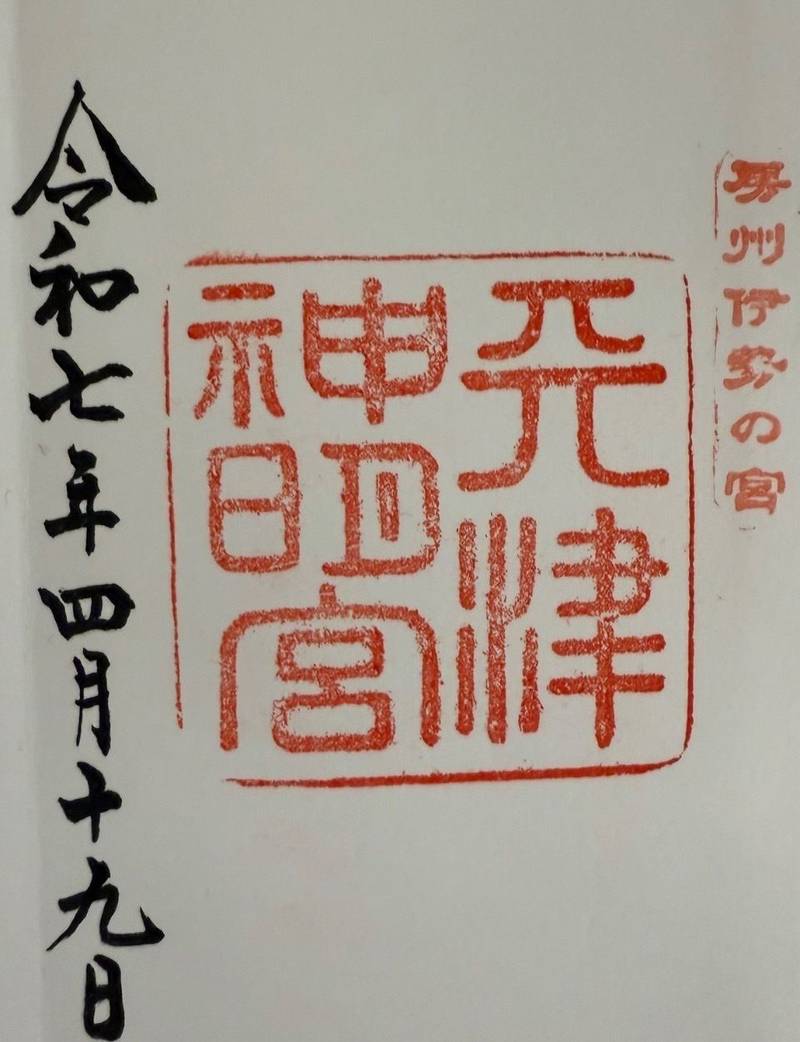 房州伊勢の宮
天津
神明宮
令和七年四月十九日